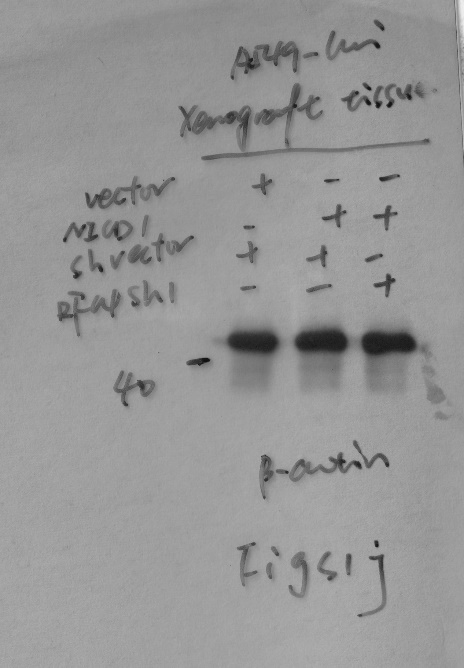 A549-luci
Xenograft tissue
vector + - -
NICD1 - + +
shvector + + -
EFabp sh1 - - +
40 -
β-actin
Figs1j